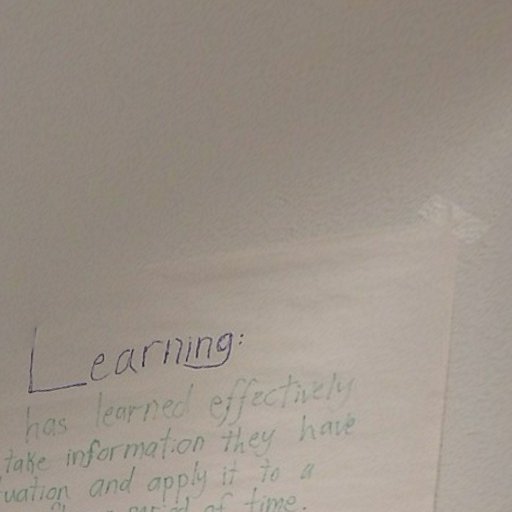 Learning:
has learned effectively
take information they have
uation and apply it to a
period of time.